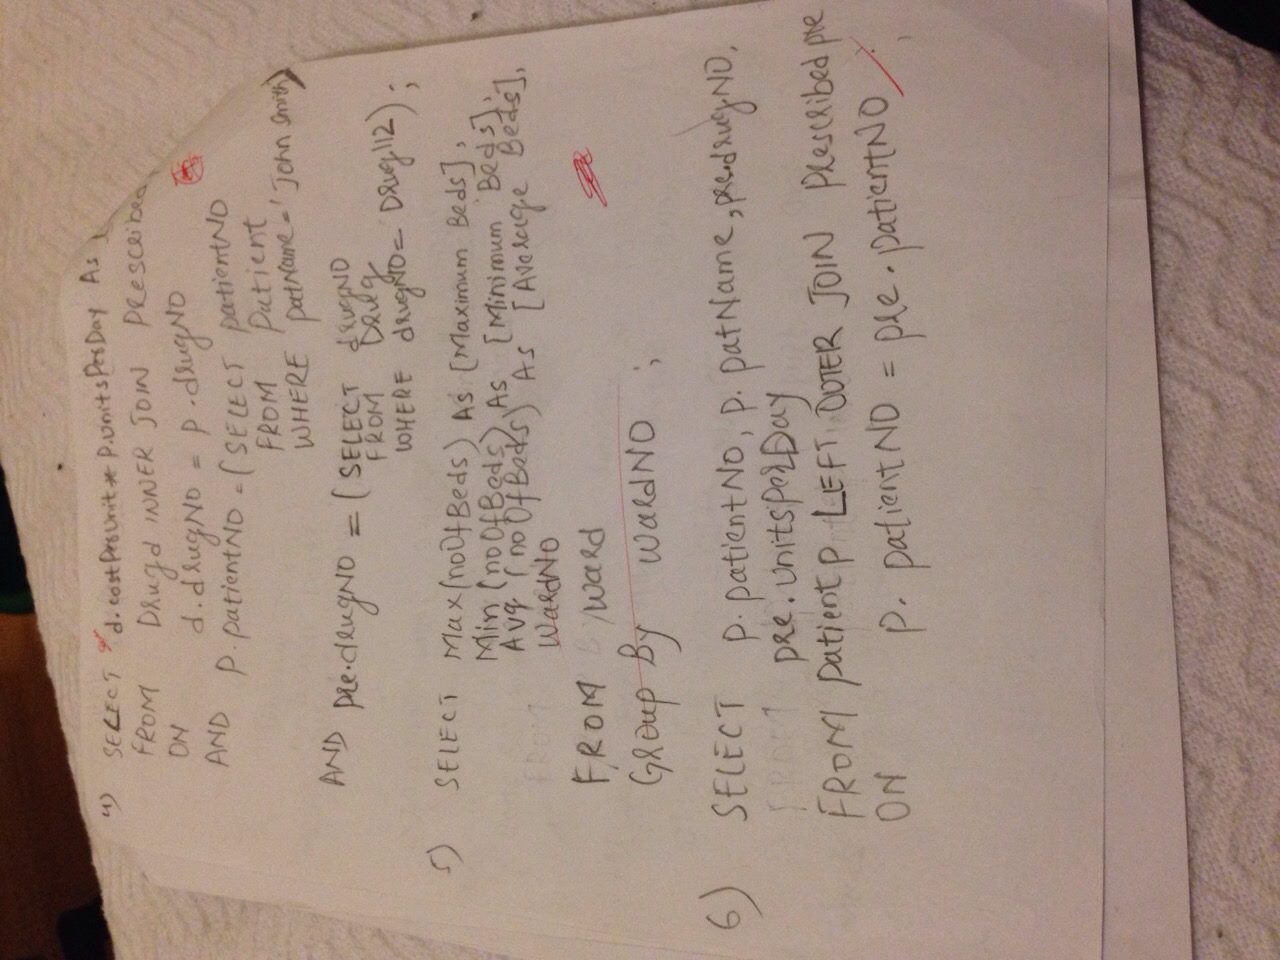 4) SELECT Sum d.costPerUnit * p.unitsPerDay As
FROM Drug d INNER JOIN Prescribed
ON d.drugNO = p.drugNO
AND p.patientNO = (SELECT patientNO
FROM Patient
WHERE patName = 'John Smith)
AND pre.drugNO = (SELECT drugNO
FROM Drug
WHERE drugNO = Drug112);
5) SELECT Max(noOfBeds) As [Maximum Beds],
Min (noOfBeds) As [Minimum Beds],
Avg (noOfBeds) As [Average Beds],
WardNO
FROM Ward
Group By WardNO ;
6) SELECT p.patientNO, p.patName, pre.drugNO,
pre.unitsPerDay
FROM patient p LEFT OUTER JOIN Prescribed pre
ON p.patientNO = pre.patientNO ;